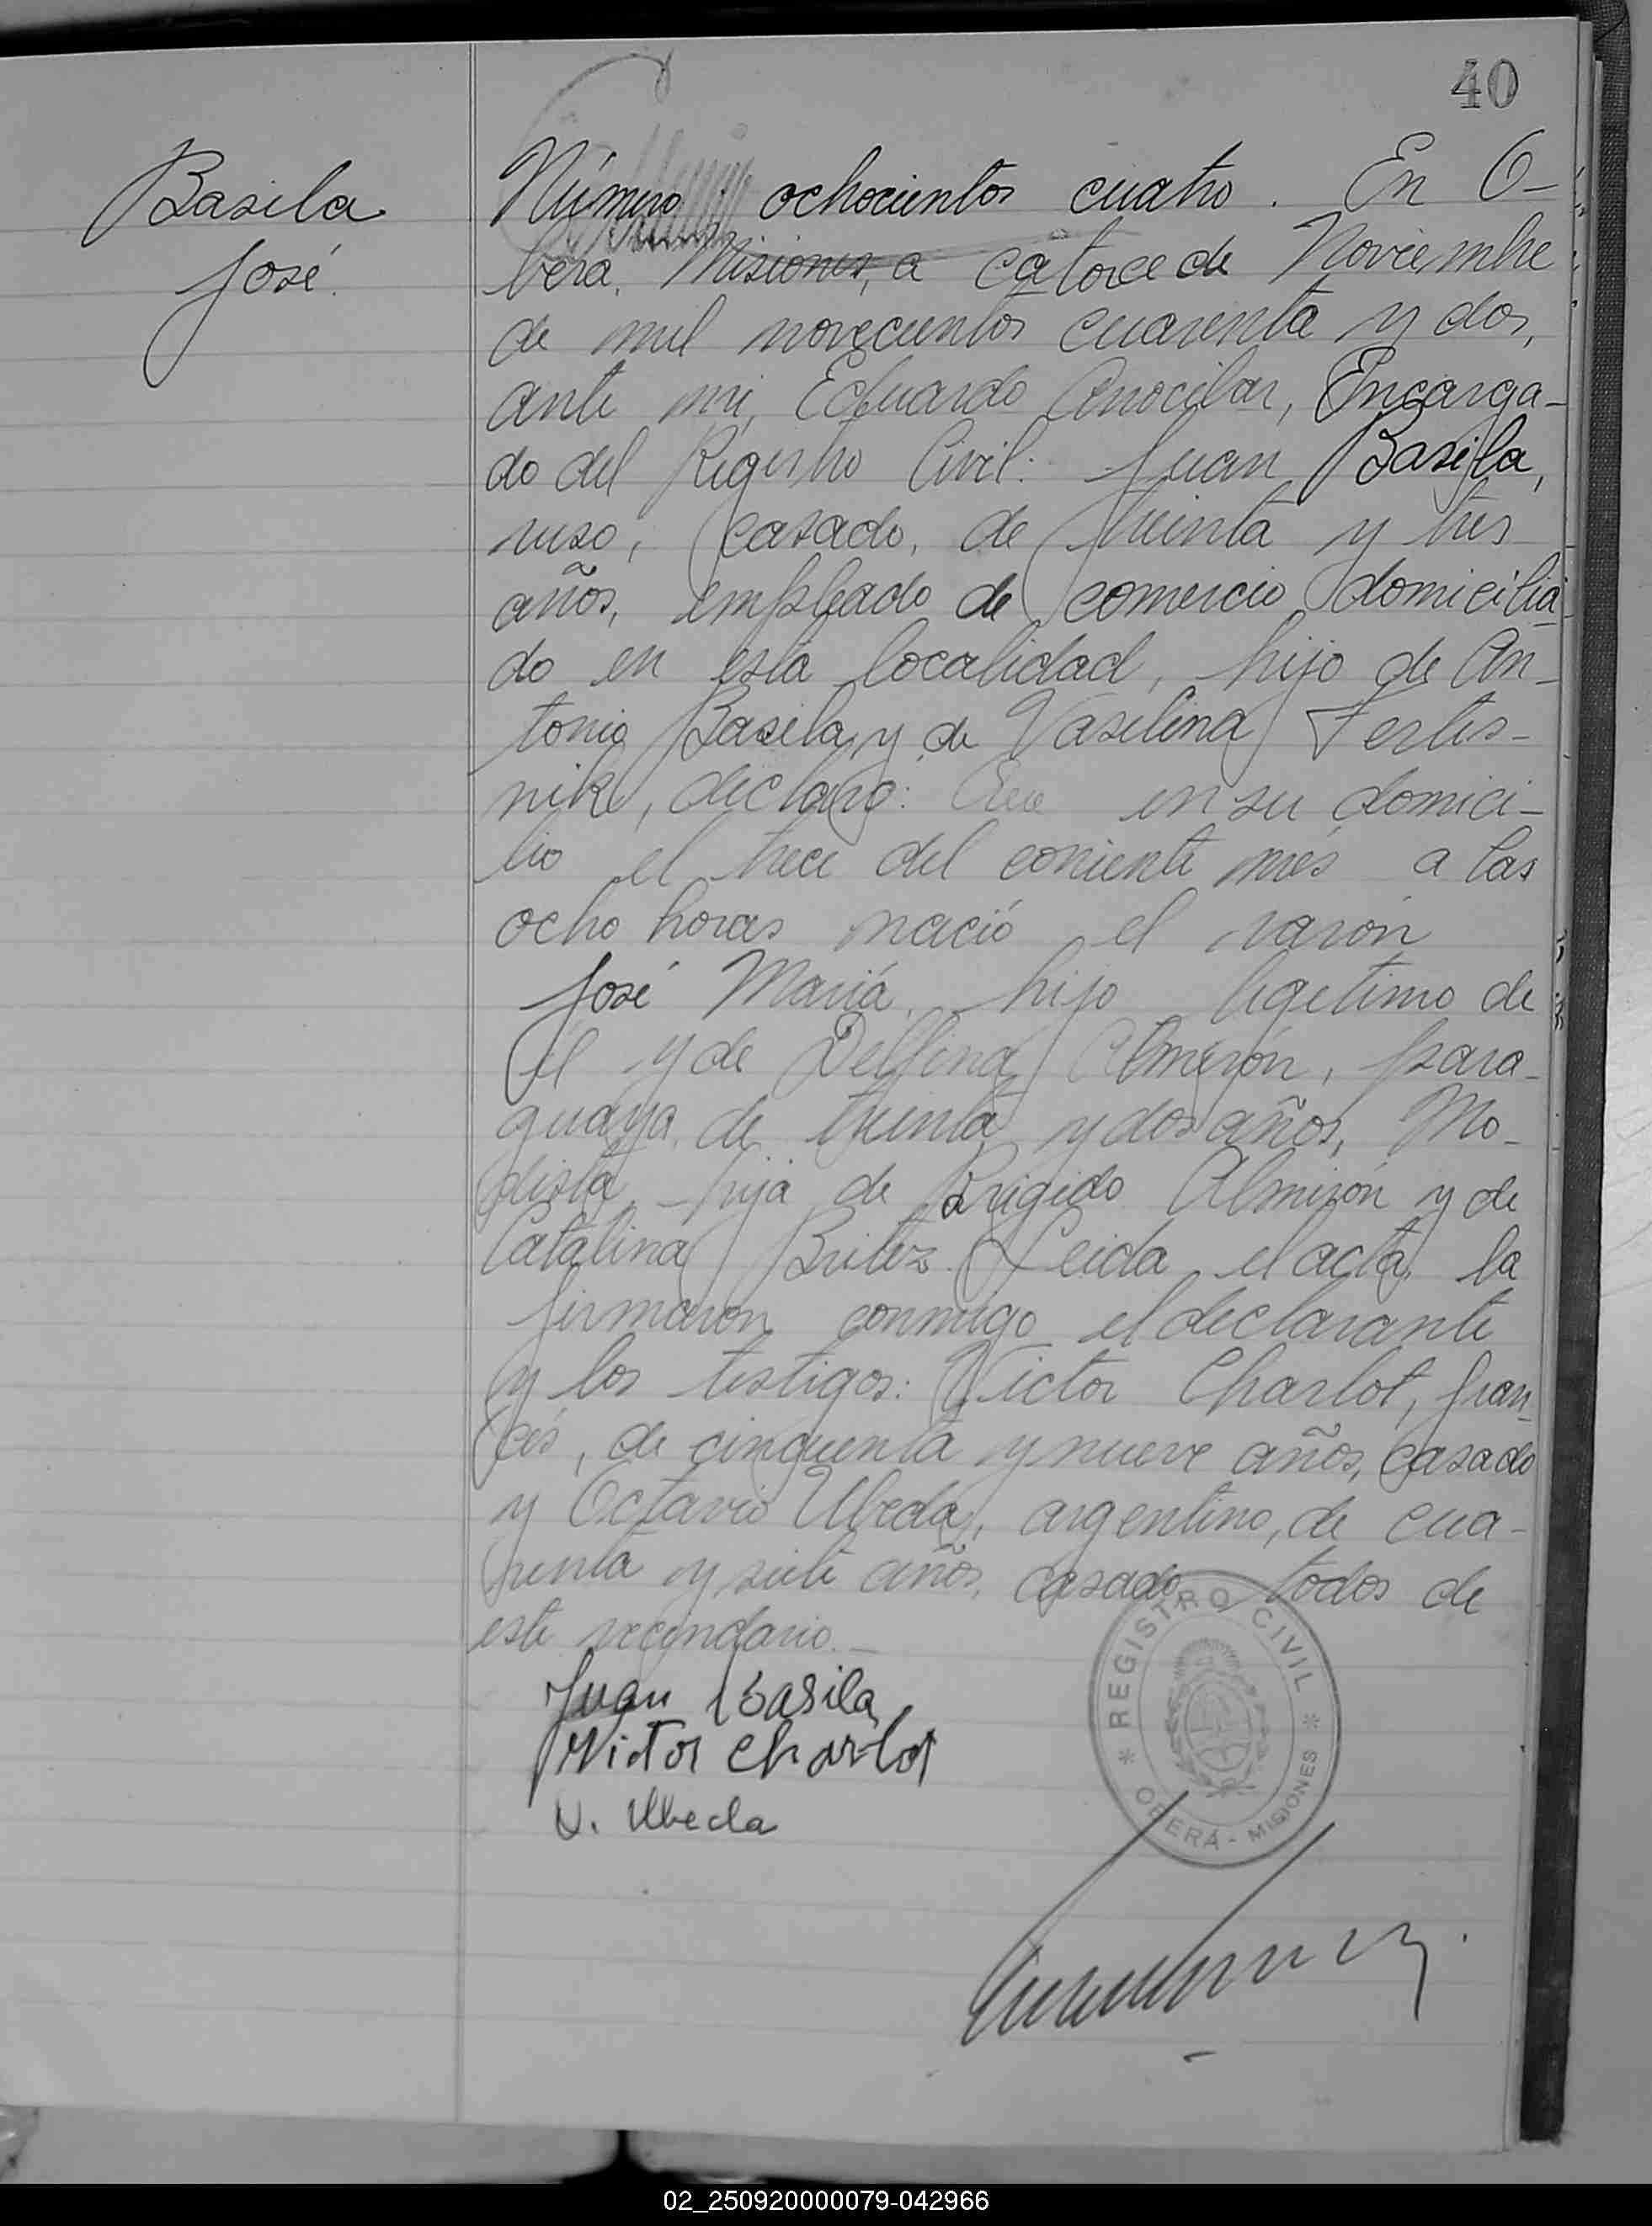 40
Basila
José.
Número ochocientos cuatro. En O-
berá, Misiones, a catorce de Noviembre
de mil novecientos cuarenta y dos,
ante mí, Eduardo Anocibar, Encarga-
do del Registro Civil: Juan Basila,
ruso, casado, de treinta y tres
años, empleado de comercio domicilia-
do en esta localidad, hijo de An-
tonio Basila y de Vasilina Fertis-
nik, declaró: Que en su domici-
lio el trece del corriente mes a las
ocho horas nació el varón
José María, hijo legitimo de
él y de Delfina Almirón, para-
guaya, de treinta y dos años, Mo-
dista, hija de Brigido Almirón y de
Catalina Britez. Leida el acta, la
firmaron conmigo el declarante
y los testigos: Victor Charlot, fran-
cés, de cinquenta y nueve años, casado
y Octavio Ubeda, argentino, de cua-
renta y siete años, casado, todos de
este vecindario.-
Juan Basila
Victor Charlot
O. Ubeda
* REGISTRO CIVIL *
OBERÁ - MISIONES
02_250920000079-042966